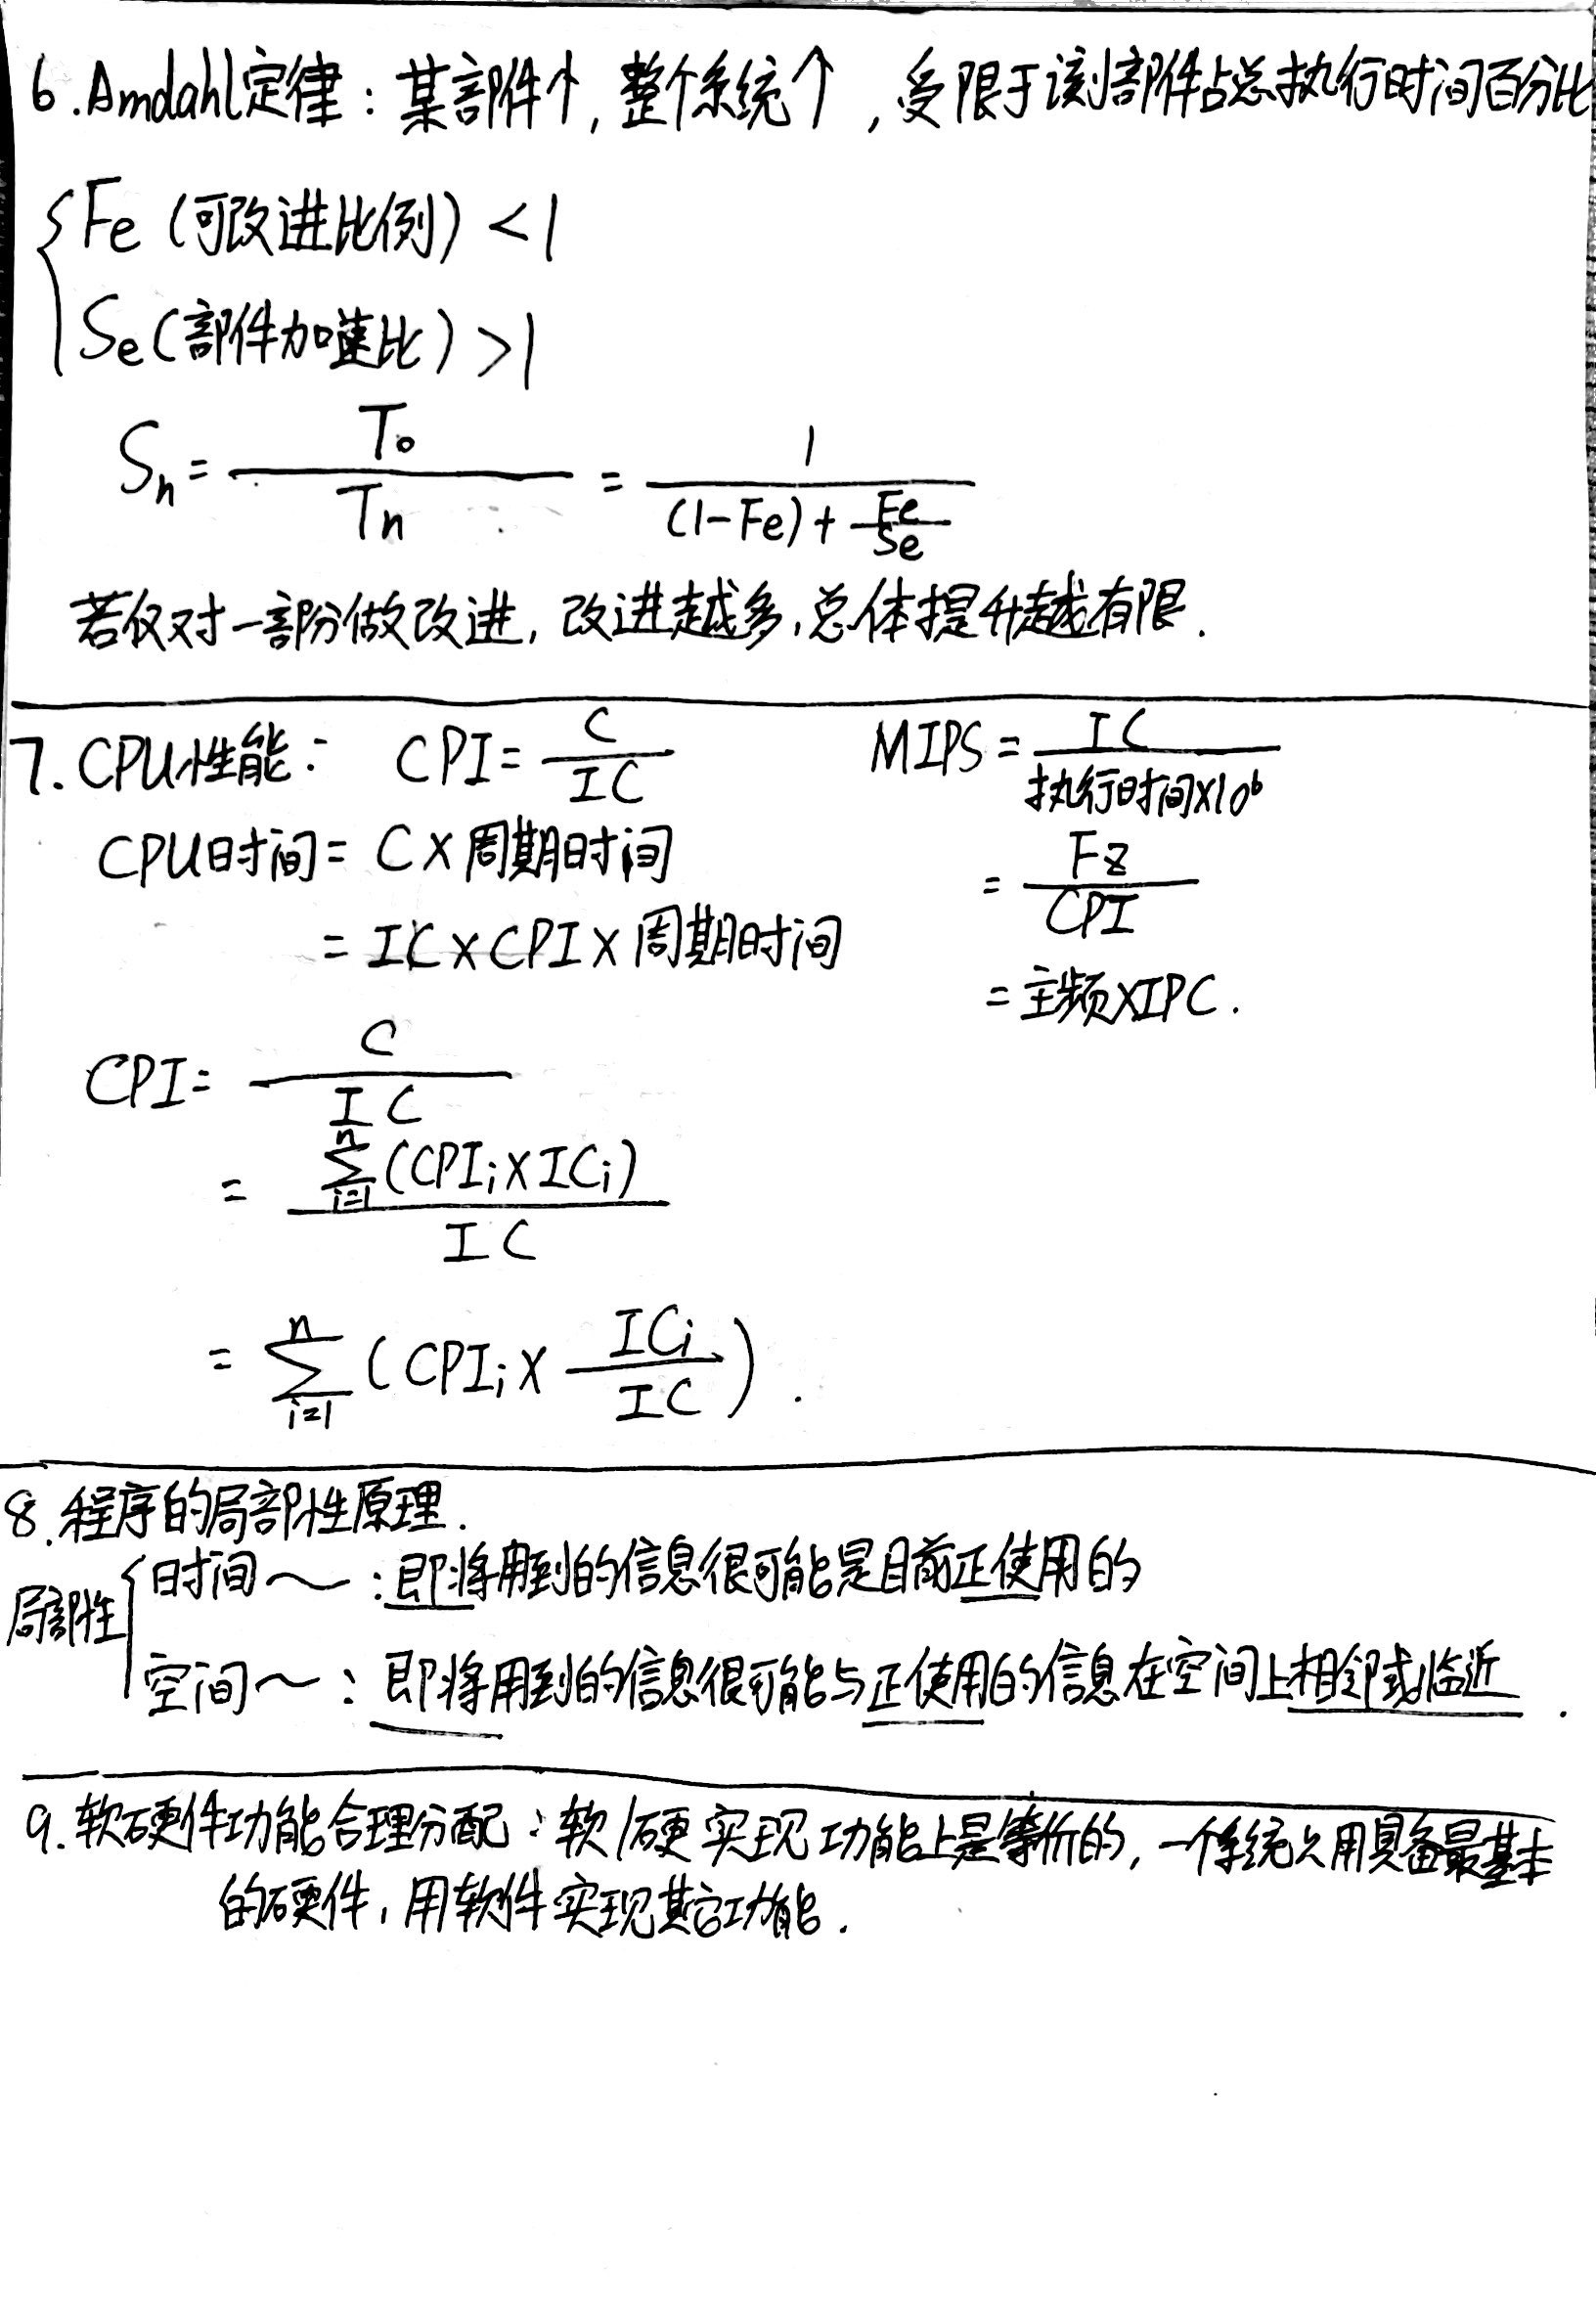 6.Amdahl定律：某部件↑,整个系统↑,受限于该部件占总执行时间百分比
Fe(可改进比例)<1
Se(部件加速比)>1
Sn= To / Tn = 1 / ((1-Fe)+ Fe/Se)
若仅对一部份做改进,改进越多,总体提升越有限.
7.CPU性能： CPI= C / IC
CPU时间= C×周期时间
= IC×CPI×周期时间
MIPS= IC / 执行时间×10⁶
= Fz / CPI
=主频×IPC.
CPI= C / IC
= ∑ⁿᵢ₌₁(CPIᵢ×ICᵢ) / IC
= ∑ⁿᵢ₌₁(CPIᵢ× ICᵢ / IC).
8.程序的局部性原理.
局部性
时间～:即将用到的信息很可能是目前正使用的
空间～：即将用到的信息很可能与正使用的信息在空间上相邻或临近.
9.软硬件功能合理分配：软/硬实现功能上是等价的,一个系统只用具备最基本
的硬件,用软件实现其它功能.